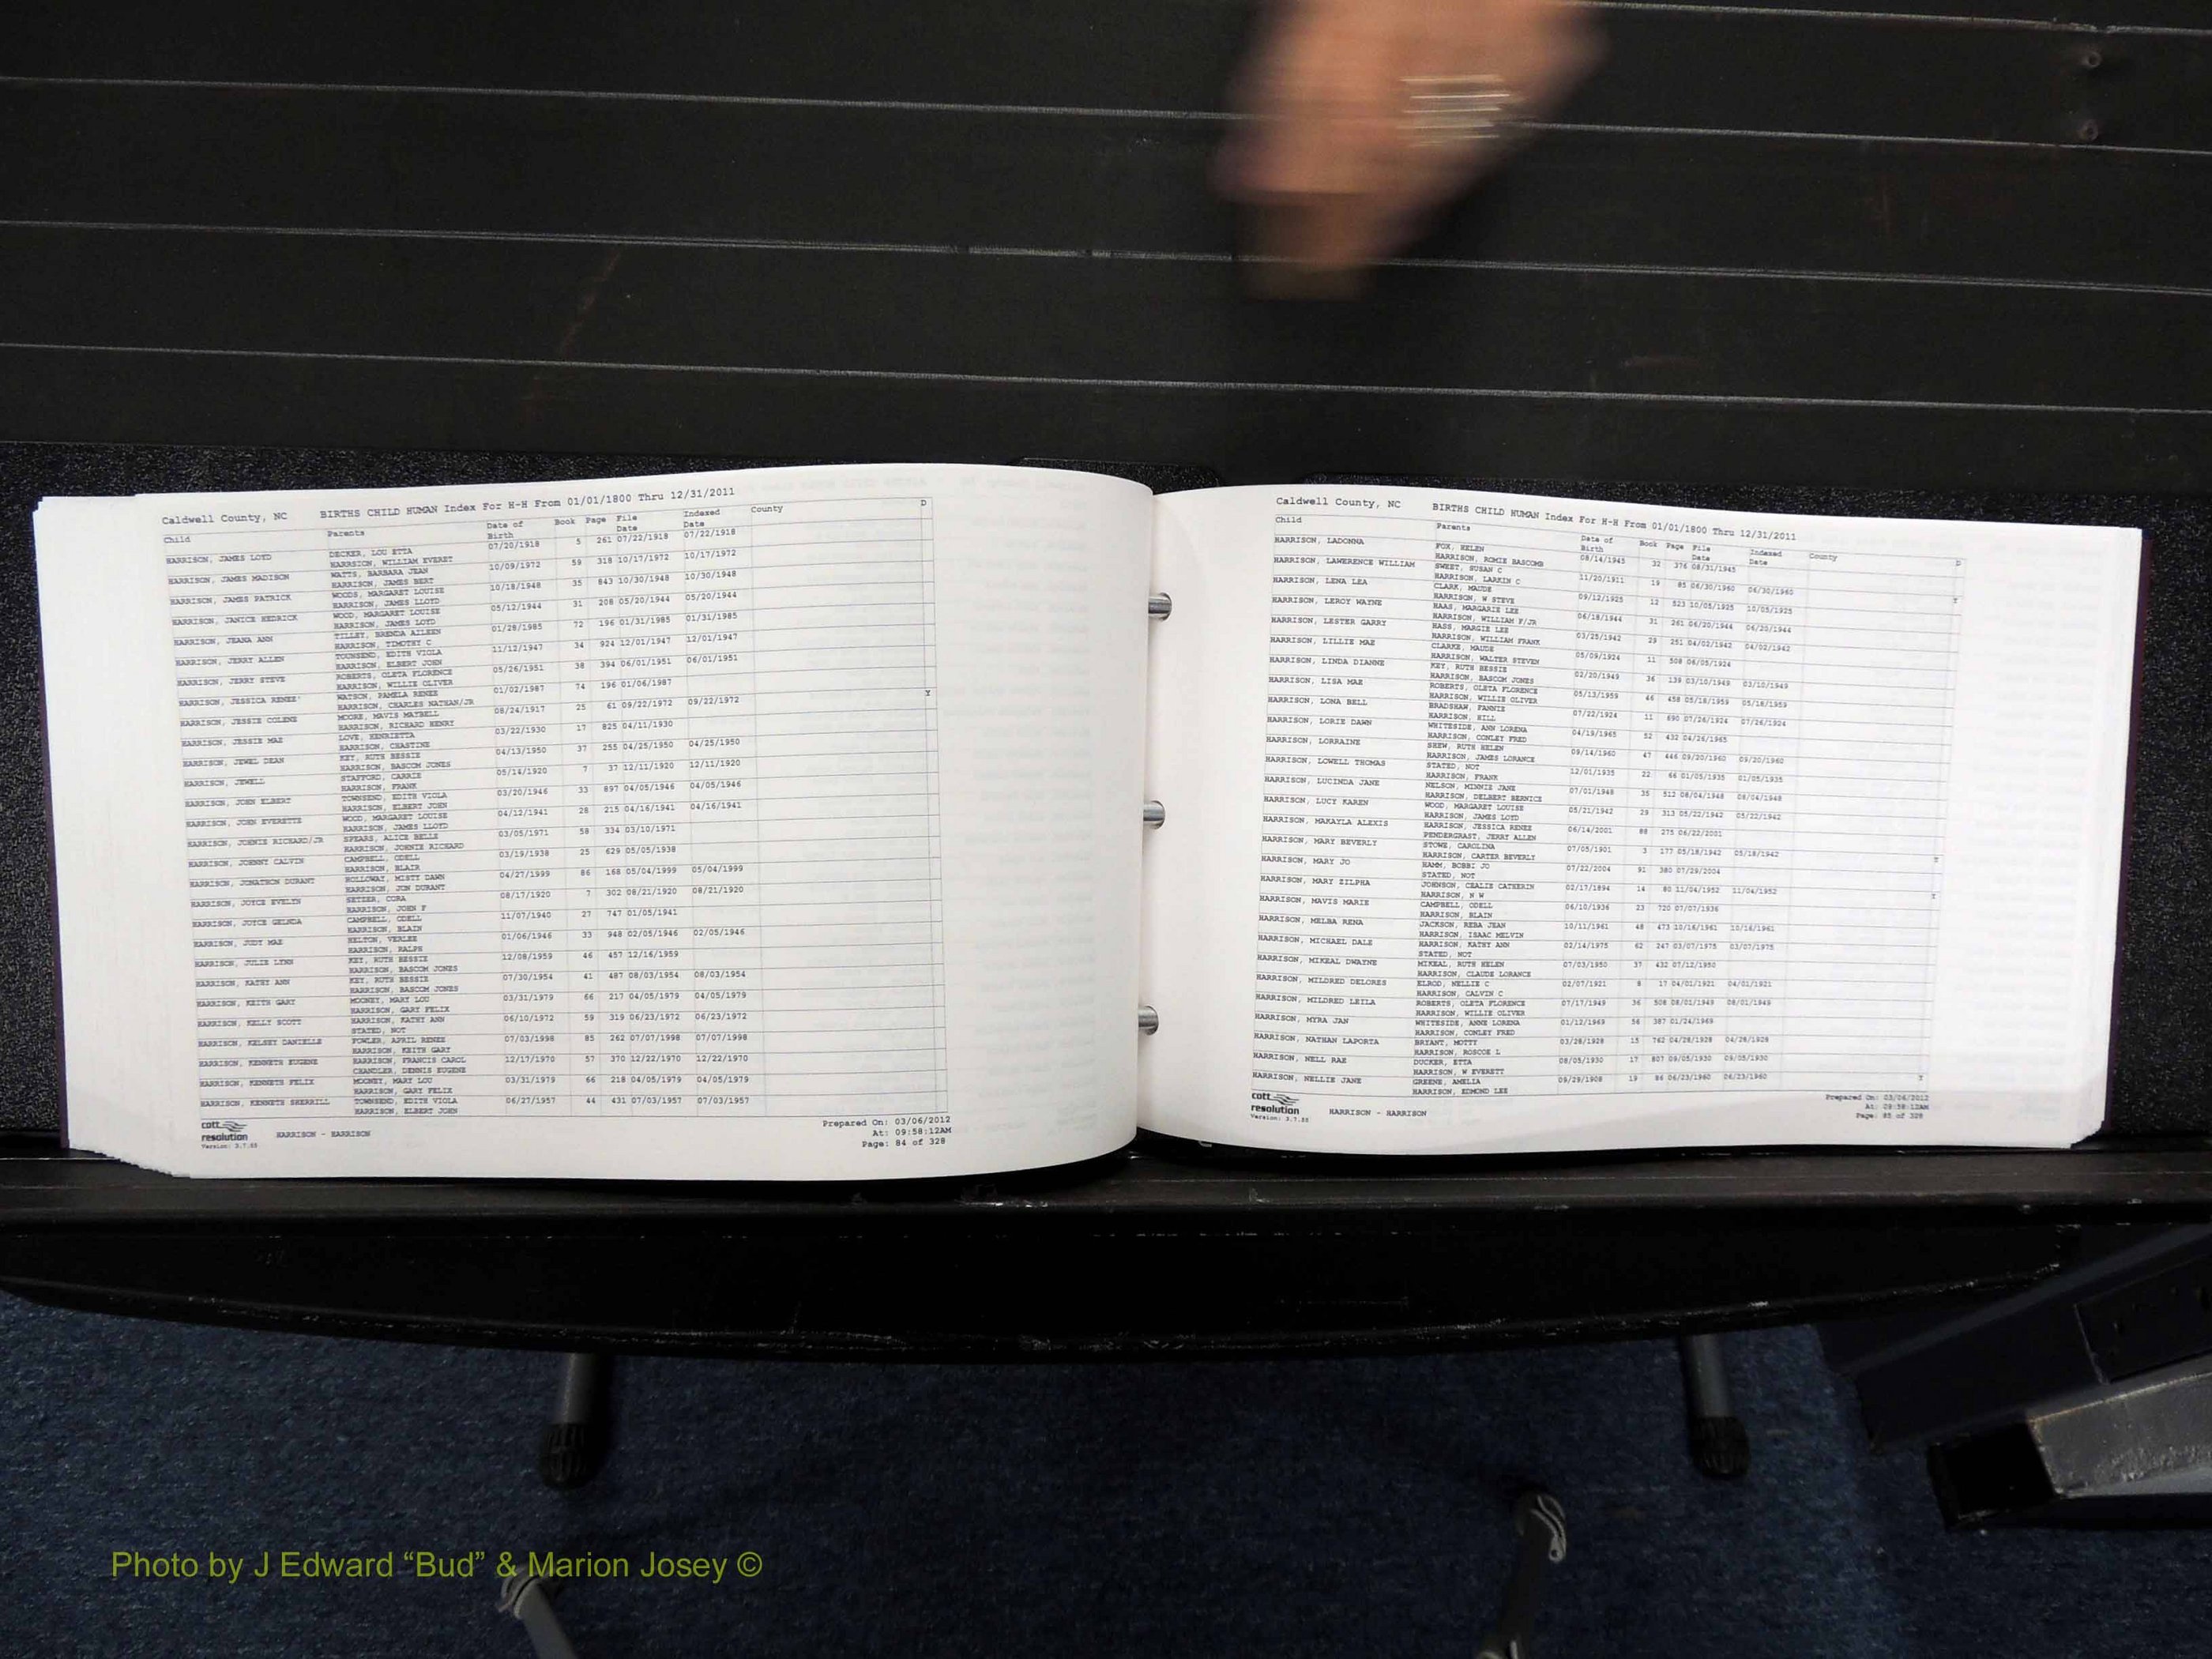 Caldwell County, NC BIRTHS CHILD HUMAN Index For H-H From 01/01/1800 Thru 12/31/2011
Child Parents Date of Birth Book Page File Date Indexed Date County D
HARRISON, JAMES LOYD DECKER, LOU ETTA 07/20/1918 5 261 07/22/1918 07/22/1918
HARRSION, WILLIAM EVERET
HARRISON, JAMES MADISON WATTS, BARBARA JEAN 10/09/1972 59 318 10/17/1972 10/17/1972
HARRISON, JAMES BERT
HARRISON, JAMES PATRICK WOODS, MARGARET LOUISE 10/18/1948 35 843 10/30/1948 10/30/1948
HARRISON, JAMES LLOYD
HARRISON, JANICE HEDRICK WOOD, MARGARET LOUISE 05/12/1944 31 208 05/20/1944 05/20/1944
HARRISON, JAMES LOYD
HARRISON, JEANA ANN TILLEY, BRENDA AILEEN 01/28/1985 72 196 01/31/1985 01/31/1985
HARRISON, TIMOTHY C
HARRISON, JERRY ALLEN TOUNSEND, EDITH VIOLA 11/12/1947 34 924 12/01/1947 12/01/1947
HARRISON, ELBERT JOHN
HARRISON, JERRY STEVE ROBERTS, OLETA FLORENCE 05/26/1951 38 394 06/01/1951 06/01/1951
HARRISON, WILLIE OLIVER
HARRISON, JESSICA RENEE' WATSON, PAMELA RENEE 01/02/1987 74 196 01/06/1987
HARRISON, CHARLES NATHAN/JR
HARRISON, JESSIE COLENE MOORE, MAVIS MAYBELL 08/24/1917 25 61 09/22/1972 09/22/1972 Y
HARRISON, RICHARD HENRY
HARRISON, JESSIE MAE LOVE, HENRIETTA 03/22/1930 17 825 04/11/1930
HARRISON, CHASTINE
HARRISON, JEWEL DEAN KEY, RUTH BESSIE 04/13/1950 37 255 04/25/1950 04/25/1950
HARRISON, BASCOM JONES
HARRISON, JEWELL STAFFORD, CARRIE 05/14/1920 7 37 12/11/1920 12/11/1920
HARRISON, FRANK
HARRISON, JOHN ELBERT TOWNSEND, EDITH VIOLA 03/20/1946 33 897 04/05/1946 04/05/1946
HARRISON, ELBERT JOHN
HARRISON, JOHN EVERETTE WOOD, MARGARET LOUISE 04/12/1941 28 215 04/16/1941 04/16/1941
HARRISON, JAMES LLOYD
HARRISON, JOHNIE RICHARD/JR SPEARS, ALICE BELLE 03/05/1971 58 334 03/10/1971
HARRISON, JOHNIE RICHARD
HARRISON, JOHNNY CALVIN CAMPBELL, ODELL 03/19/1938 25 629 05/05/1938
HARRISON, BLAIR
HARRISON, JONATHON DURANT HOLLOWAY, MISTY DAWN 04/27/1999 86 168 05/04/1999 05/04/1999
HARRISON, JON DURANT
HARRISON, JOYCE EVELYN SETZER, CORA 08/17/1920 7 302 08/21/1920 08/21/1920
HARRISON, JOHN F
HARRISON, JOYCE GELNDA CAMPBELL, ODELL 11/07/1940 27 747 01/05/1941
HARRISON, BLAIN
HARRISON, JUDY MAE HELTON, VERLEE 01/06/1946 33 948 02/05/1946 02/05/1946
HARRISON, RALPH
HARRISON, JULIE LYNN KEY, RUTH BESSIE 12/08/1959 46 457 12/16/1959
HARRISON, BASCOM JONES
HARRISON, KATHY ANN KEY, RUTH BESSIE 07/30/1954 41 487 08/03/1954 08/03/1954
HARRISON, BASCOM JONES
HARRISON, KEITH GARY MOONEY, MARY LOU 03/31/1979 66 217 04/05/1979 04/05/1979
HARRISON, GARY FELIX
HARRISON, KELLY SCOTT HARRISON, KATHY ANN 06/10/1972 59 319 06/23/1972 06/23/1972
STATED, NOT
HARRISON, KELSEY DANIELLE FOWLER, APRIL RENEE 07/03/1998 85 262 07/07/1998 07/07/1998
HARRISON, KEITH GARY
HARRISON, KENNETH EUGENE HARRISON, FRANCIS CAROL 12/17/1970 57 370 12/22/1970 12/22/1970
CHANDLER, DENNIS EUGENE
HARRISON, KENNETH FELIX MOONEY, MARY LOU 03/31/1979 66 218 04/05/1979 04/05/1979
HARRISON, GARY FELIX
HARRISON, KENNETH SHERRILL TOWNSEND, EDITH VIOLA 06/27/1957 44 431 07/03/1957 07/03/1957
HARRISON, ELBERT JOHN
cott resolution Version: 3.7.55 HARRISON - HARRISON
Prepared On: 03/06/2012
At: 09:58:12AM
Page: 84 of 328
Caldwell County, NC BIRTHS CHILD HUMAN Index For H-H From 01/01/1800 Thru 12/31/2011
Child Parents Date of Birth Book Page File Date Indexed Date County D
HARRISON, LADONNA FOX, HELEN 08/14/1945 32 376 08/31/1945
HARRISON, ROMIE BASCOMB
HARRISON, LAWERENCE WILLIAM SWEET, SUSAN C 11/20/1911 19 85 06/30/1960 06/30/1960 Y
HARRISON, LARKIN C
HARRISON, LENA LEA CLARK, MAUDE 09/12/1925 12 523 10/05/1925 10/05/1925
HARRISON, W STEVE
HARRISON, LEROY WAYNE HAAS, MARGARIE LEE 06/18/1944 31 261 06/20/1944 06/20/1944
HARRISON, WILLIAM F/JR
HARRISON, LESTER GARRY HASS, MARGIE LEE 03/25/1942 29 251 04/02/1942 04/02/1942
HARRISON, WILLIAM FRANK
HARRISON, LILLIE MAE CLARKE, MAUDE 05/09/1924 11 508 06/05/1924
HARRISON, WALTER STEVEN
HARRISON, LINDA DIANNE KEY, RUTH BESSIE 02/20/1949 36 139 03/10/1949 03/10/1949
HARRISON, BASCOM JONES
HARRISON, LISA MAE ROBERTS, OLETA FLORENCE 05/13/1959 46 458 05/18/1959 05/18/1959
HARRISON, WILLIE OLIVER
HARRISON, LONA BELL BRADSHAW, FANNIE 07/22/1924 11 690 07/26/1924 07/26/1924
HARRISON, HILL
HARRISON, LORIE DAWN WHITESIDE, ANN LORENA 04/19/1965 52 432 04/26/1965
HARRISON, CONLEY FRED
HARRISON, LORRAINE SHEW, RUTH HELEN 09/14/1960 47 446 09/20/1960 09/20/1960
HARRISON, JAMES LORANCE
HARRISON, LOWELL THOMAS STATED, NOT 12/01/1935 22 66 01/05/1935 01/05/1935
HARRISON, FRANK
HARRISON, LUCINDA JANE NELSON, MINNIE JANE 07/01/1948 35 512 08/04/1948 08/04/1948
HARRISON, DELBERT BERNICE
HARRISON, LUCY KAREN WOOD, MARGARET LOUISE 05/21/1942 29 313 05/22/1942 05/22/1942
HARRISON, JAMES LOYD
HARRISON, MAKAYLA ALEXIS HARRISON, JESSICA RENEE 06/14/2001 88 275 06/22/2001
PENDERGRAST, JERRY ALLEN
HARRISON, MARY BEVERLY STOWE, CAROLINA 07/05/1901 3 177 05/18/1942 05/18/1942 Y
HARRISON, CARTER BEVERLY
HARRISON, MARY JO HAMM, BOBBI JO 07/22/2004 91 380 07/29/2004
STATED, NOT
HARRISON, MARY ZILPHA JOHNSON, CEALIE CATHERIN 02/17/1894 14 80 11/04/1952 11/04/1952 Y
HARRISON, N W
HARRISON, MAVIS MARIE CAMPBELL, ODELL 06/10/1936 23 720 07/07/1936
HARRISON, BLAIN
HARRISON, MELBA RENA JACKSON, REBA JEAN 10/11/1961 48 473 10/16/1961 10/16/1961
HARRISON, ISAAC MELVIN
HARRISON, MICHAEL DALE HARRISON, KATHY ANN 02/14/1975 62 247 03/07/1975 03/07/1975
STATED, NOT
HARRISON, MIKEAL DWAYNE MIKEAL, RUTH HELEN 07/03/1950 37 432 07/12/1950
HARRISON, CLAUDE LORANCE
HARRISON, MILDRED DELORES ELROD, NELLIE C 02/07/1921 8 17 04/01/1921 04/01/1921
HARRISON, CALVIN C
HARRISON, MILDRED LEILA ROBERTS, OLETA FLORENCE 07/17/1949 36 508 08/01/1949 08/01/1949
HARRISON, WILLIE OLIVER
HARRISON, MYRA JAN WHITESIDE, ANNE LORENA 01/12/1969 56 387 01/24/1969
HARRISON, CONLEY FRED
HARRISON, NATHAN LAPORTA BRYANT, MOTTY 03/28/1928 15 762 04/28/1928 04/28/1928
HARRISON, ROSCOE L
HARRISON, NELL RAE DUCKER, ETTA 08/05/1930 17 807 09/05/1930 09/05/1930
HARRISON, W EVERETT
HARRISON, NELLIE JANE GREENE, AMELIA 09/29/1908 19 86 06/23/1960 06/23/1960 Y
HARRISON, EDMOND LEE
cott resolution Version: 3.7.55 HARRISON - HARRISON
Prepared On: 03/06/2012
At: 09:58:12AM
Page: 85 of 328
Photo by J Edward “Bud” & Marion Josey ©